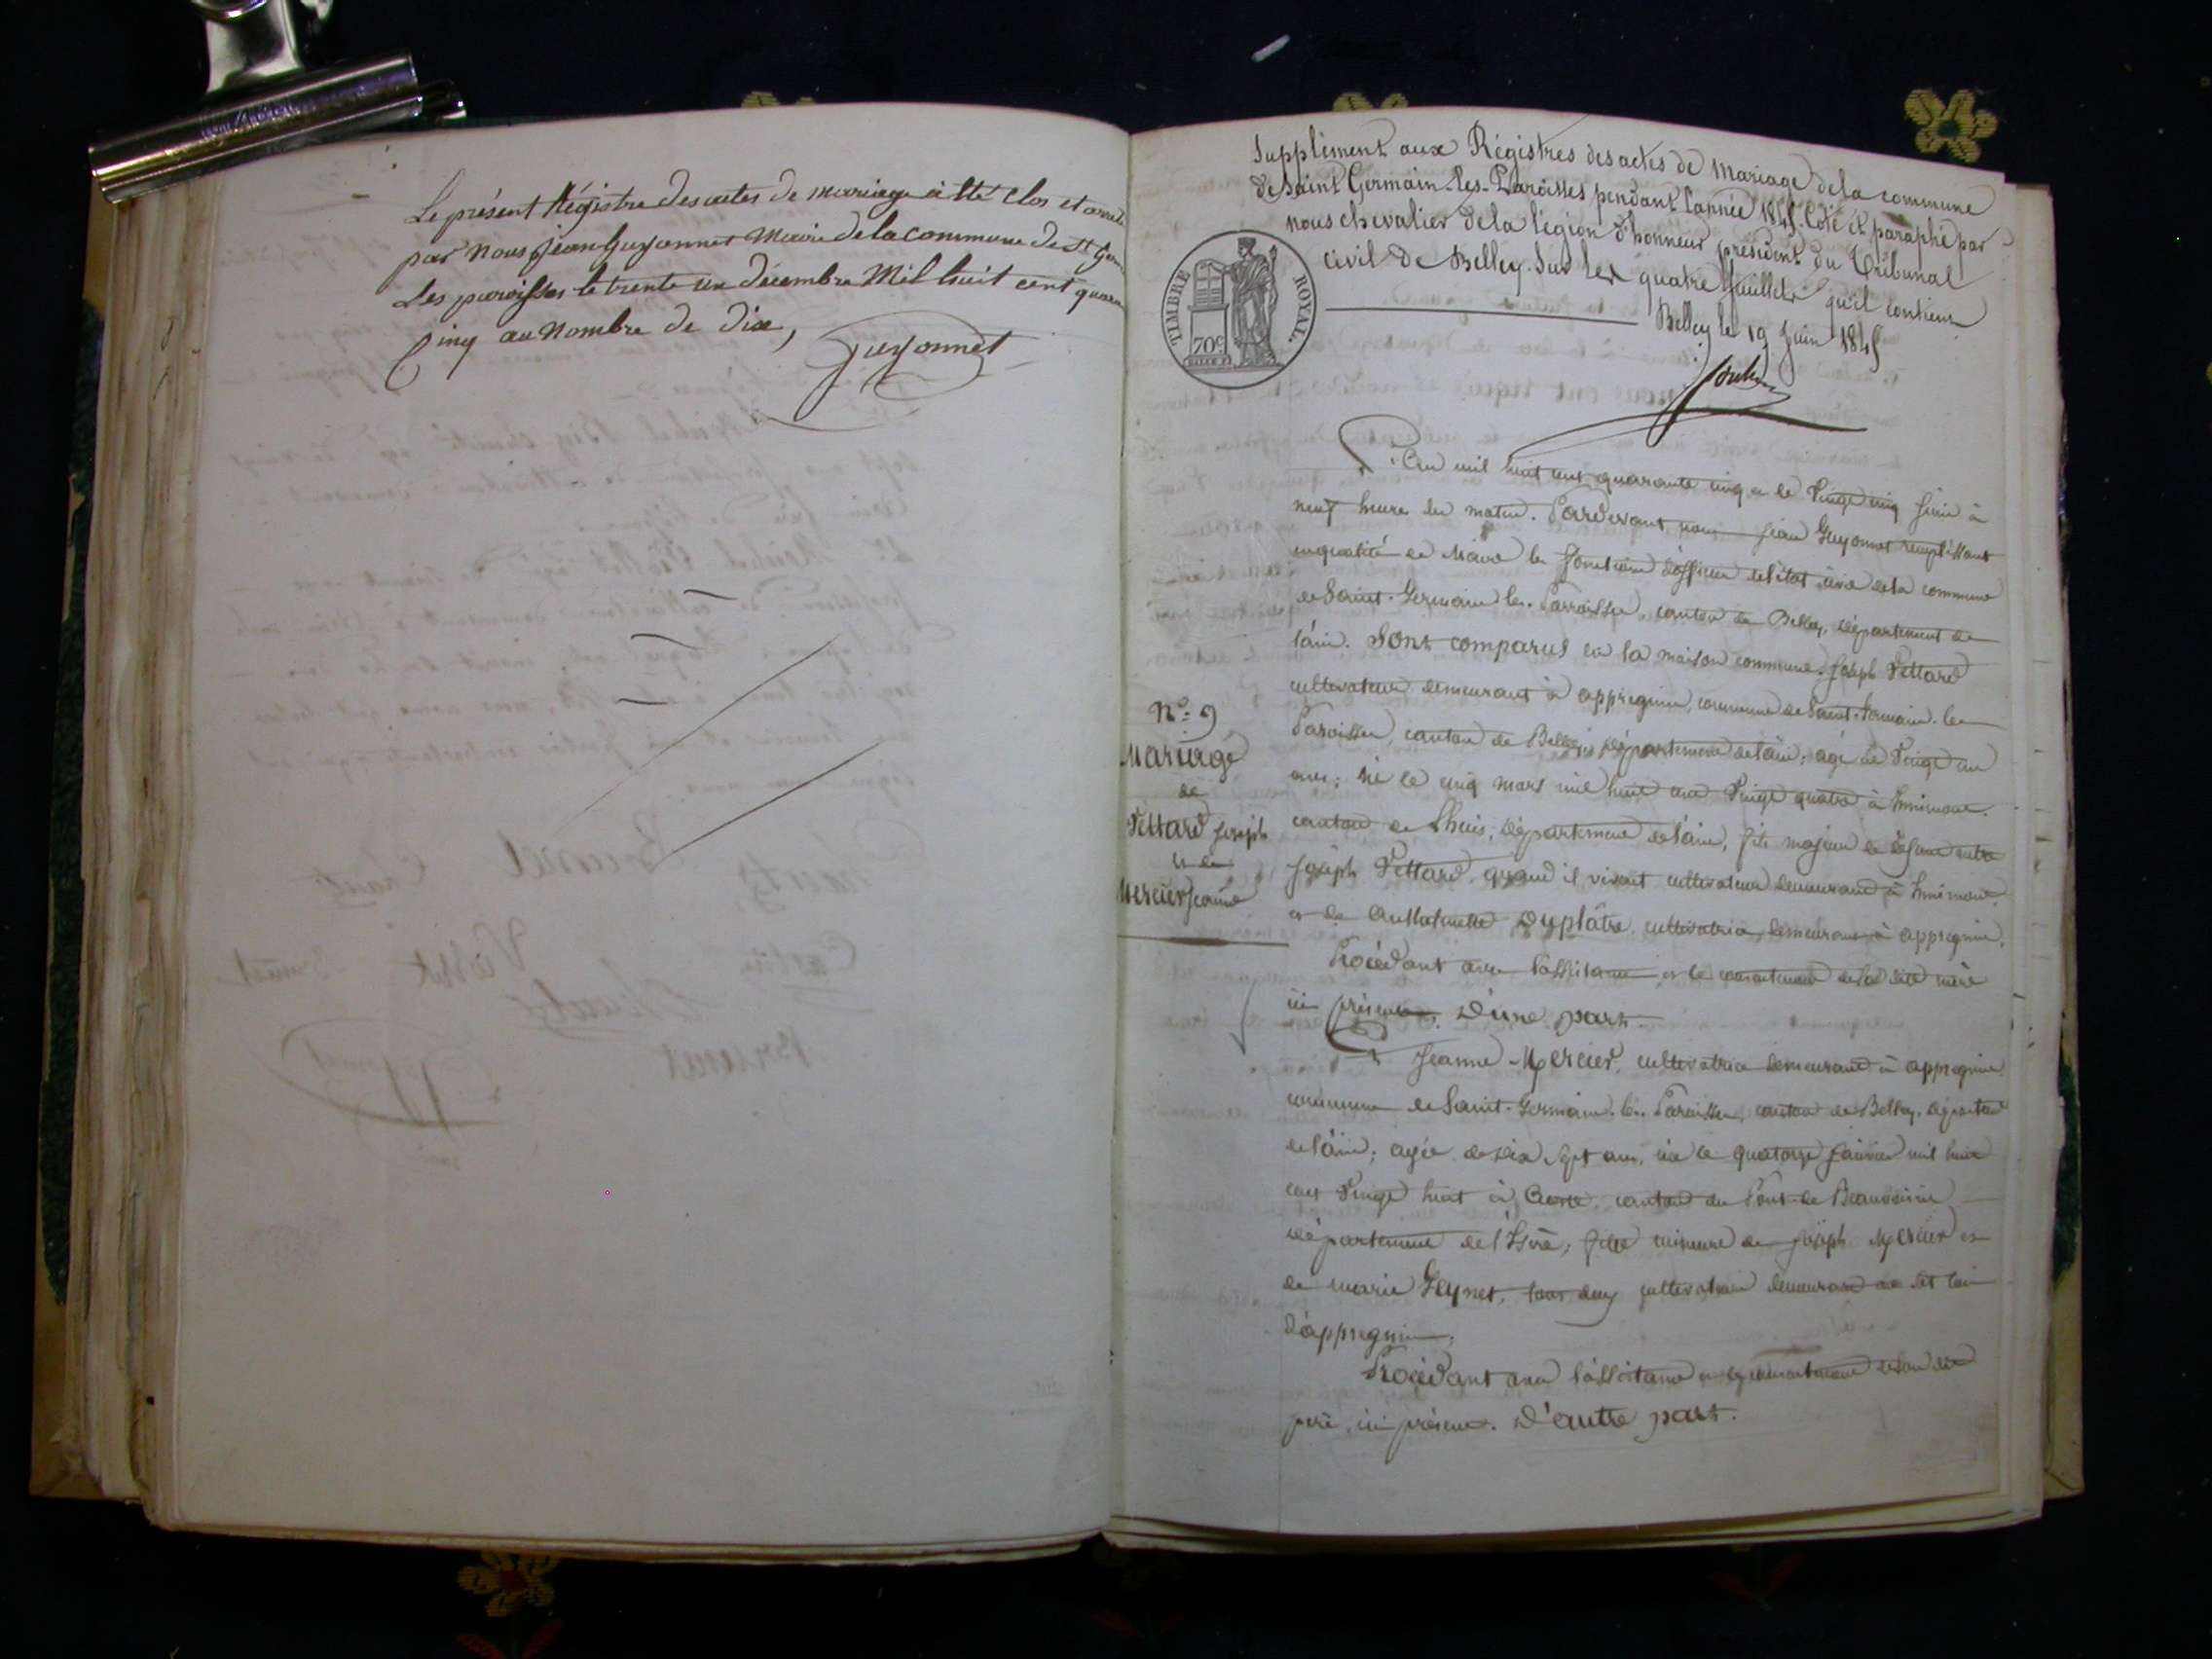 Le présent Régistre des actes de mariage à été Clos et arreté
par nous Jean Guyonnet Maire de la Commune de St Ger
Les paroisses le trente un décembre Mil huit cent quara
Cinq au nombre de dix,
Guyonnet
Supplément aux Régistres des actes de Mariage de la commune
de Saint Germain-les-Paroisses pendant l'année 1845. Coté et paraphé par
nous chevalier de la légion d'honneur président du Tribunal
civil de Belley. Sur les quatre feuillets qu'il contient
Belley le 19 Juin 1845
TIMBRE ROYAL.
70c
L'an mil huit cent quarante cinq et le Vingt cinq Juin à
neuf heure du matin. Pardevant nous Jean Guyonnet remplissant
en qualité de Maire les fonctions d'officier de l'état civil de la commune
de Saint-Germain les-Parroisses, canton de Belley, département de
l'ain. Sont comparus en la maison commune. Joseph Vettard
cultivateur demeurant à appregnin, commune de Saint-Germain-les
Paroisses, canton de Belley, département de l'ain; agé de Vingt un
ans; né le cinq mars mil huit cent Vingt quatre à Innimont.
canton de Lhuis, département de l'ain, fils majeur de défunt autre
Joseph Vettard, quand il vivait cultivateur demeurant à Innimont,
et de Duplâtre, cultivatrice, demeurant à appregnin.
Procédant avec l'assistance et le consentement de sa dite mère
ici présente. D'une part.
Nº. 9
Mariage
de
Vettard Joseph
et de
Mercier Jeanne
Jeanne Mercier, cultivatrice demeurant à appregnin
commune de Saint-Germain-les-Paroisses, canton de Belley, département
de l'ain; agée de dix sept ans, née le quatorze Janvier mil huit
cent Vingt huit à canton du Pont-de-Beauvoisin
département de l'Isère; fille mineure de Joseph Mercier et
de marie Geynet, tous deux cultivateurs demeurant au dit lieu
d'appregnin;
Procédant avec l'assistance et le consentement de son dit
père, ici présent. D'autre part.